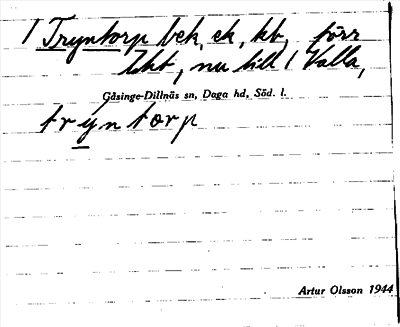 1 Tryntorp bek, ek, kb, förr
lht, nu till 1 Valla,
Gåsinge-Dillnäs sn, Daga hd, Söd. l.
trýntorp
Artur Olsson 1944